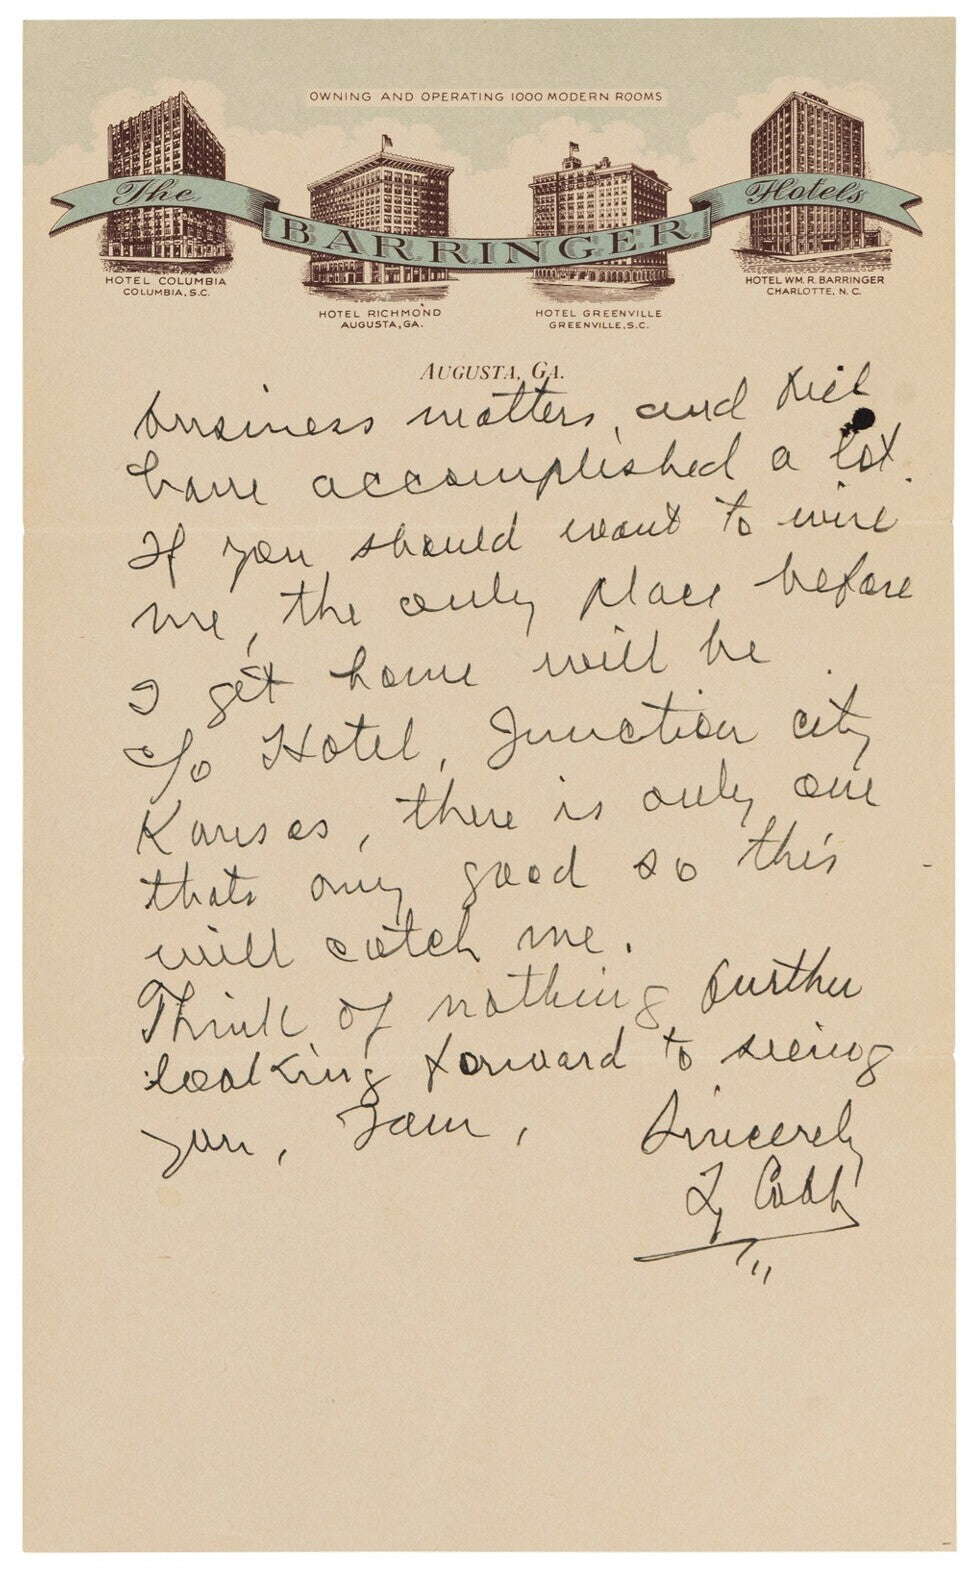 OWNING AND OPERATING 1000 MODERN ROOMS
The BARRINGER Hotels
HOTEL COLUMBIA
COLUMBIA, S.C.
HOTEL RICHMOND
AUGUSTA, GA.
HOTEL GREENVILLE
GREENVILLE, S.C.
HOTEL WM. R. BARRINGER
CHARLOTTE, N.C.
AUGUSTA, GA.
business matters, and
have accomplished a lot.
If you should want to wire
me, the only place before
I get home will be
c/o Hotel, Junction city
Kansas, there is only one
thats any good so this
will catch me.
Think of nothing further
looking forward to seeing
you, I am, Sincerely
Ty Cobb